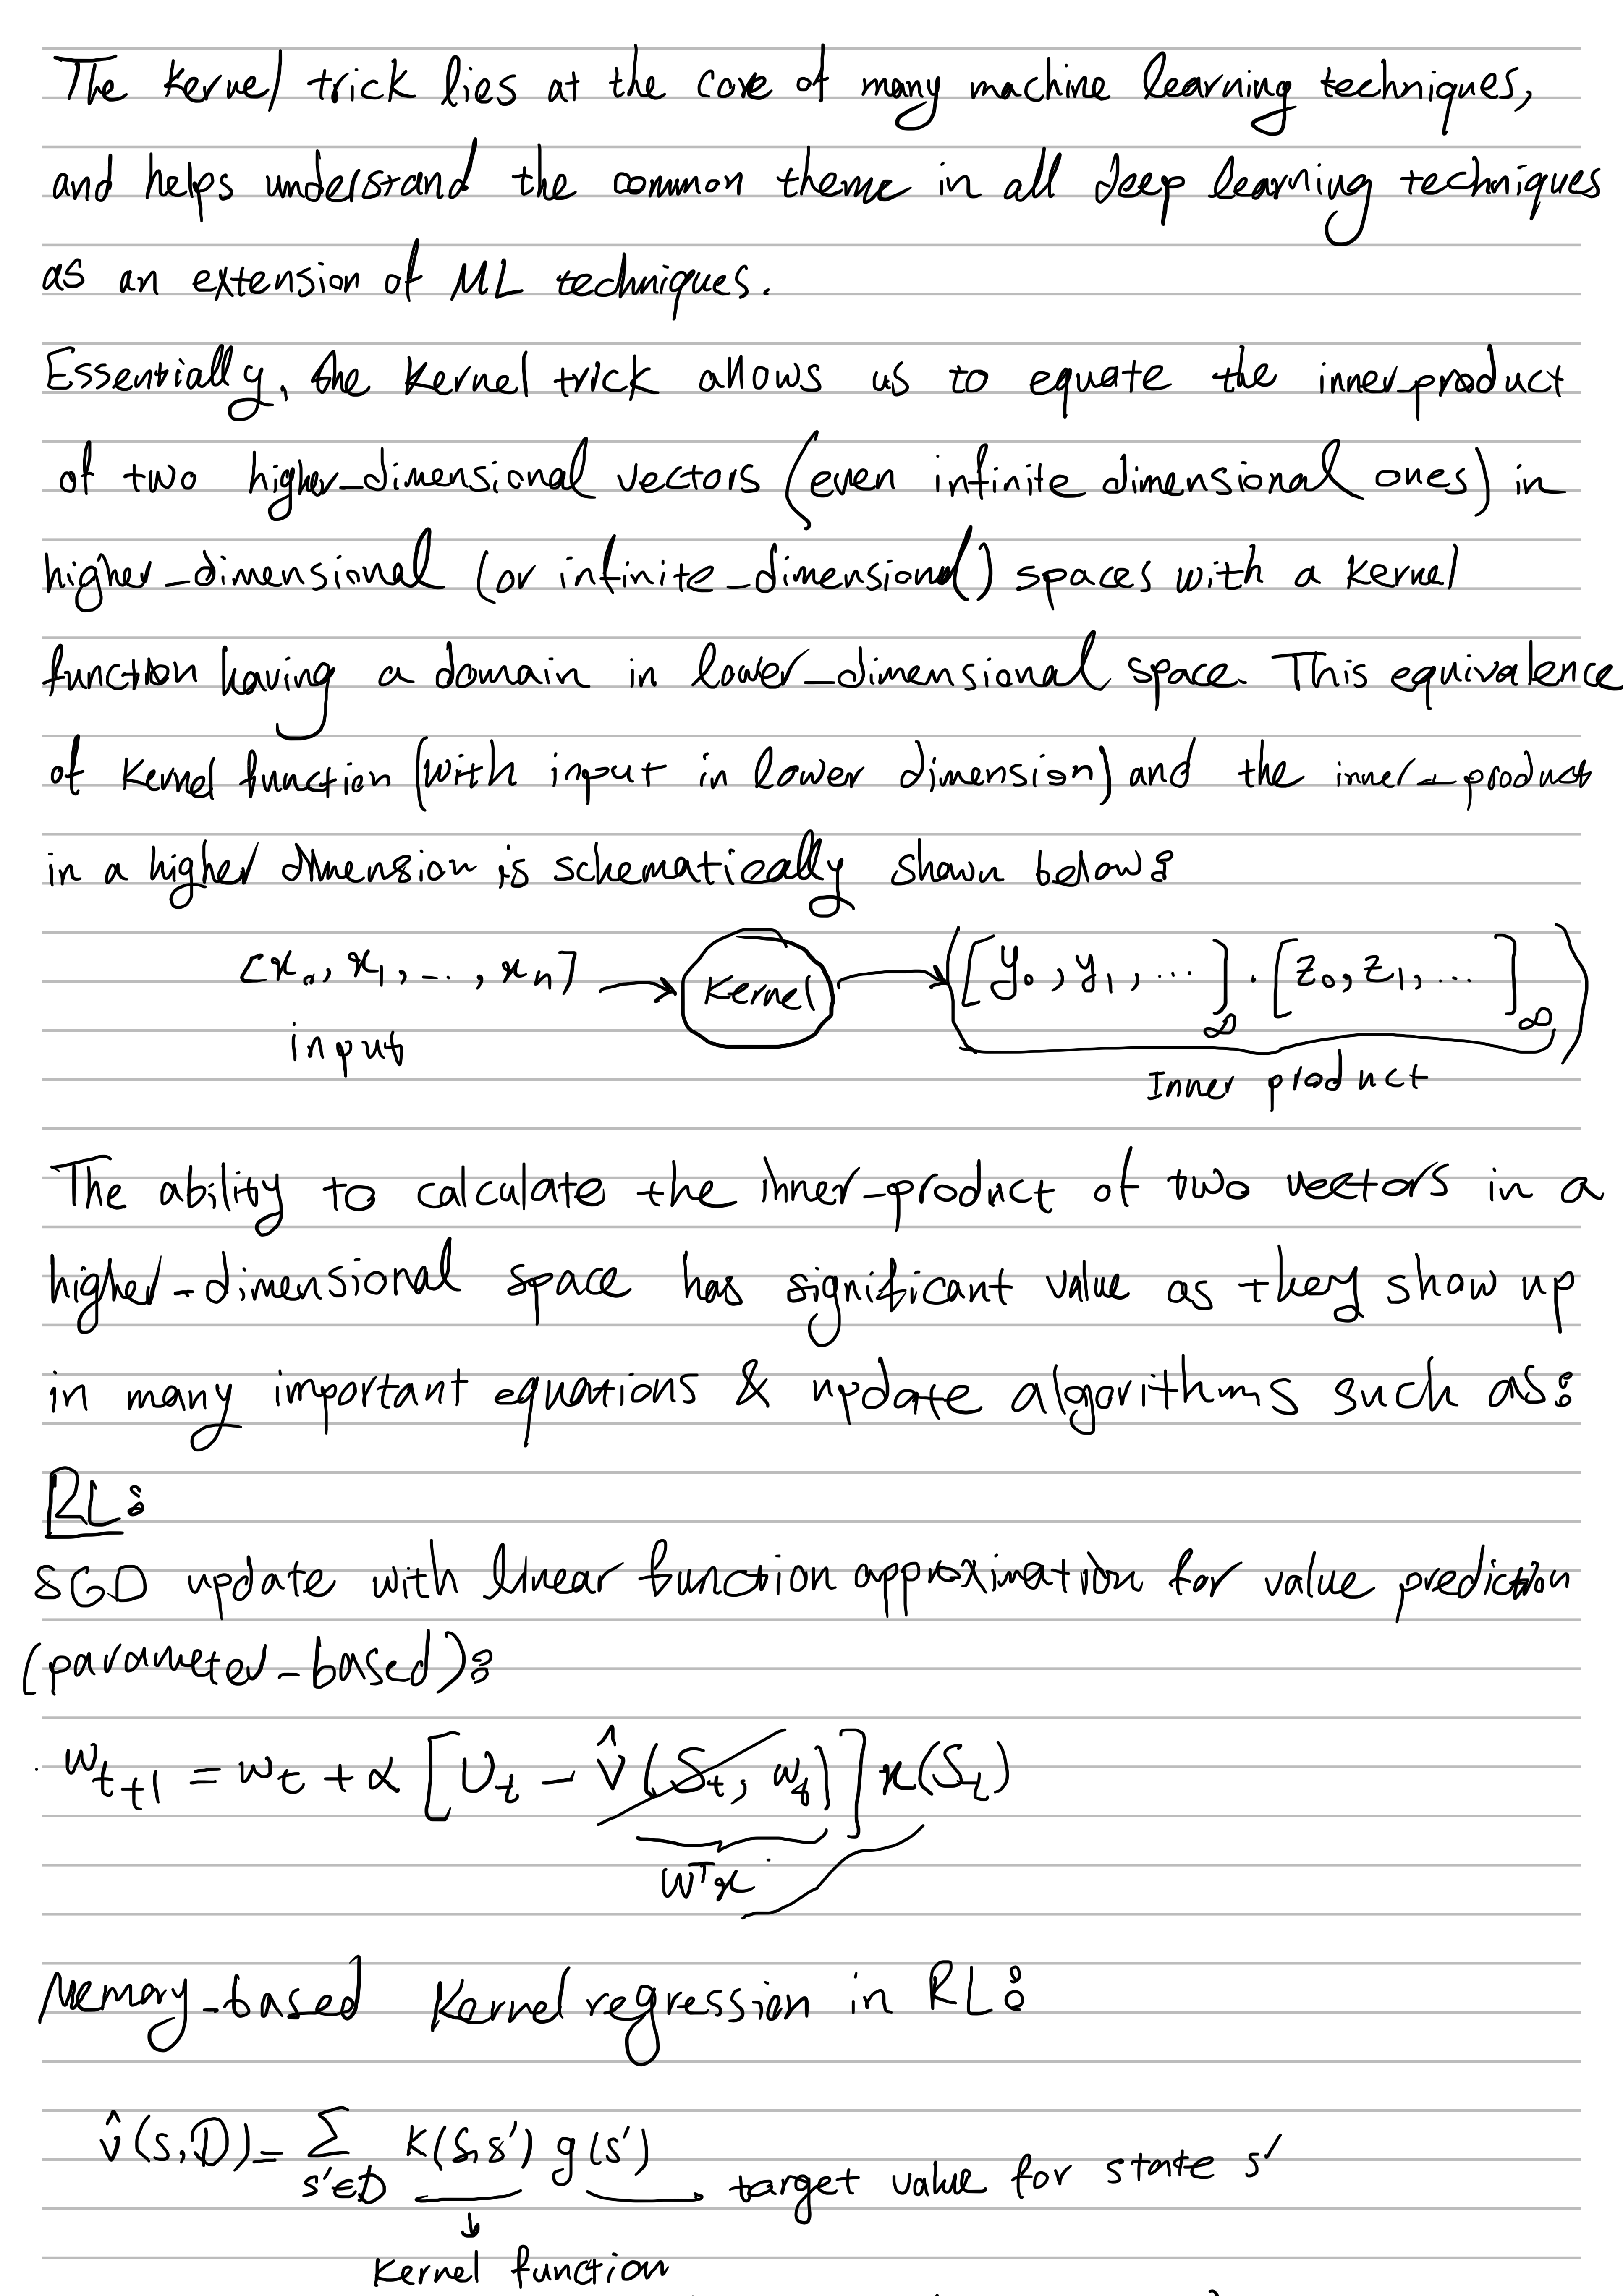 The kernel trick lies at the core of many machine learning techniques,
and helps understand the common theme in all deep learning techniques
as an extension of ML techniques.
Essentially, the kernel trick allows us to equate the inner-product
of two higher-dimensional vectors (even infinite dimensional ones) in
higher-dimensional (or infinite-dimensional) spaces with a kernel
function having a domain in lower-dimensional space. This equivalence
of kernel function (with input in lower dimension) and the inner-product
in a higher dimension is schematically shown below:
[x₀, x₁, ..., xₙ] → Kernel → ([y₀, y₁, ... ]∞ . [z₀, z₁, ... ]∞)
input
Inner product
The ability to calculate the inner-product of two vectors in a
higher-dimensional space has significant value as they show up
in many important equations & update algorithms such as:
RL:
SGD update with linear function approximation for value prediction
(parameter-based):
w_{t+1} = w_t + α [U_t − v̂(S_t, w_t)] x(S_t)
wᵀx
Memory-based Kernel regression in RL:
v̂(s,D) = Σ_{s'∈D} k(s,s') g(s') target value for state s'
Kernel function